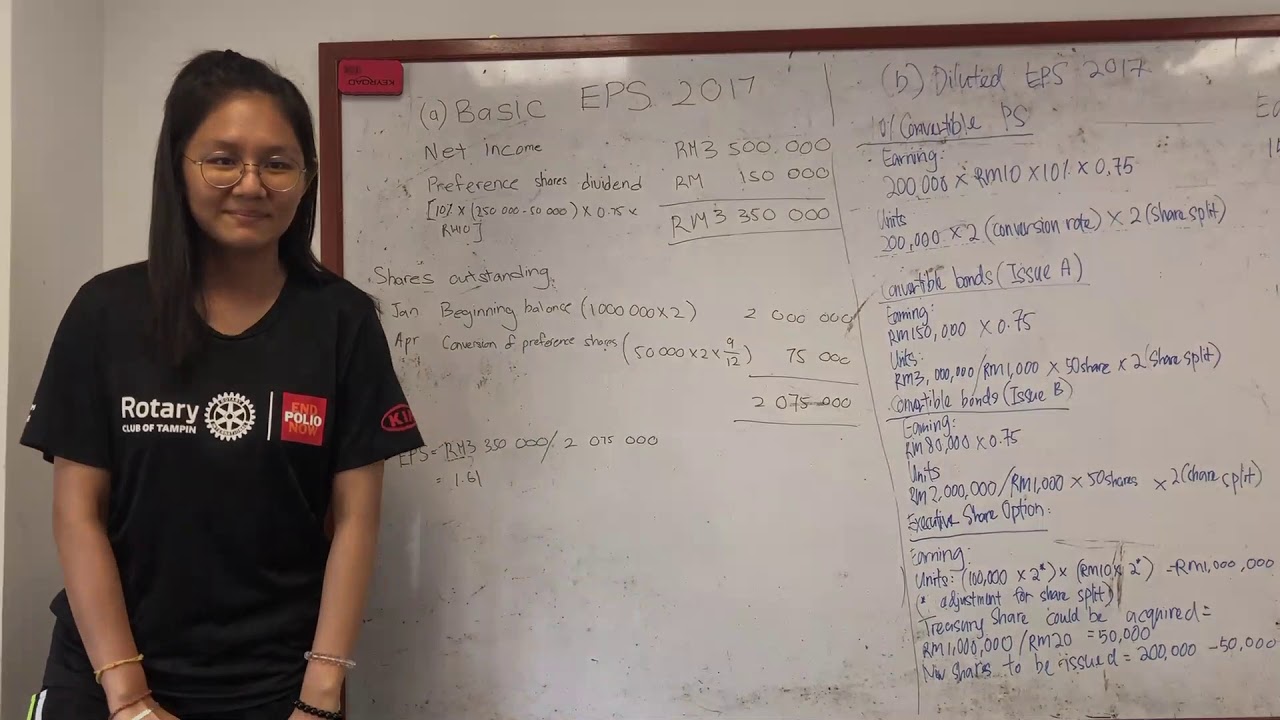 KEYROAD
(a) Basic EPS 2017
Net income RM3 500.000
Preference shares dividend RM 150 000
[10% x (250 000 - 50 000) x 0.75 x
RM10]
RM3 350 000
Shares outstanding
Jan Beginning balance (1000 000 x 2) 2 000 000
Apr Conversion of preference shares (50 000 x 2 x 9/12) 75 000
2 075 000
EPS = RM3 350 000 / 2 075 000
= 1.61
(b) Diluted EPS 2017
10% Convertible PS
Earning:
200,000 x RM10 x 10% x 0.75
Units
200,000 x 2 (conversion rate) x 2 (share split)
Convertible bonds (Issue A)
Earning:
RM150,000 x 0.75
Units:
RM3,000,000/RM1,000 x 50share x 2 (share split)
Convertible bonds (Issue B)
Earning:
RM80,000 x 0.75
Units
RM2,000,000/RM1,000 x 50shares x 2 (share split)
Executive Share Option:
Earning:
Units: (100,000 x 2*) x (RM10 2*) - RM1,000,000
(* adjustment for share split)
Treasury share could be acquired =
RM1,000,000/RM20 = 50,000
New shares to be issued = 200,000 - 50,000
Rotary
CLUB OF TAMPIN
END
POLIO
NOW